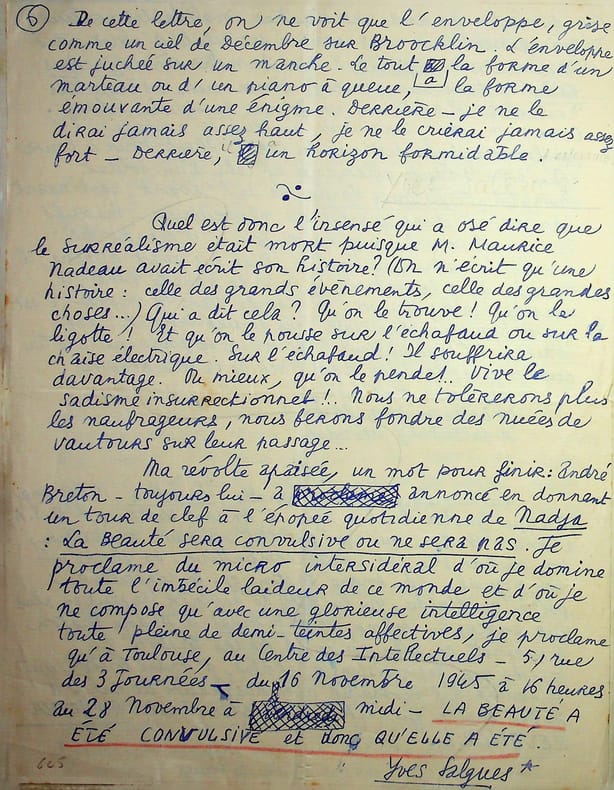 6 De cette lettre, on ne voit que l'enveloppe, grise
comme un ciel de Décembre sur Broocklin. L'enveloppe
est juchée sur un manche. Le tout a la forme d'un
marteau ou d'un piano à queue, la forme
émouvante d'une énigme. Derrière – je ne le
dirai jamais assez haut, je ne le crierai jamais assez
fort – Derrière, un horizon formidable.
Quel est donc l'insensé qui a osé dire que
le surréalisme était mort puisque M. Maurice
Nadeau avait écrit son histoire? (On n'écrit qu'une
histoire : celle des grands événements, celle des grandes
choses...) Qui a dit cela? Qu'on le trouve! Qu'on le
ligotte! Et qu'on le pousse sur l'échafaud ou sur la
chaise électrique. Sur l'échafaud! Il souffrira
davantage. Ou mieux, qu'on le pende!.. Vive le
sadisme insurrectionnel!.. Nous ne tolèrerons plus
les naufrageurs, nous ferons fondre des nuées de
vautours sur leur passage...
Ma révolte apaisée, un mot pour finir: André
Breton – toujours lui – a annoncé en donnant
un tour de clef à l'épopée quotidienne de Nadja
: La Beauté sera convulsive ou ne sera pas. Je
proclame du micro intersidéral d'où je domine
toute l'imbécile laideur de ce monde et d'où je
ne compose qu'avec une glorieuse intelligence
toute pleine de demi-teintes affectives, je proclame
qu'à Toulouse, au Centre des Intellectuels – 5, rue
des 3 Journées – du 16 Novembre 1945 à 16 heures
au 28 Novembre à midi – LA BEAUTÉ A
ÉTÉ CONVULSIVE et donc QU'ELLE A ÉTÉ.
Yves Salgues